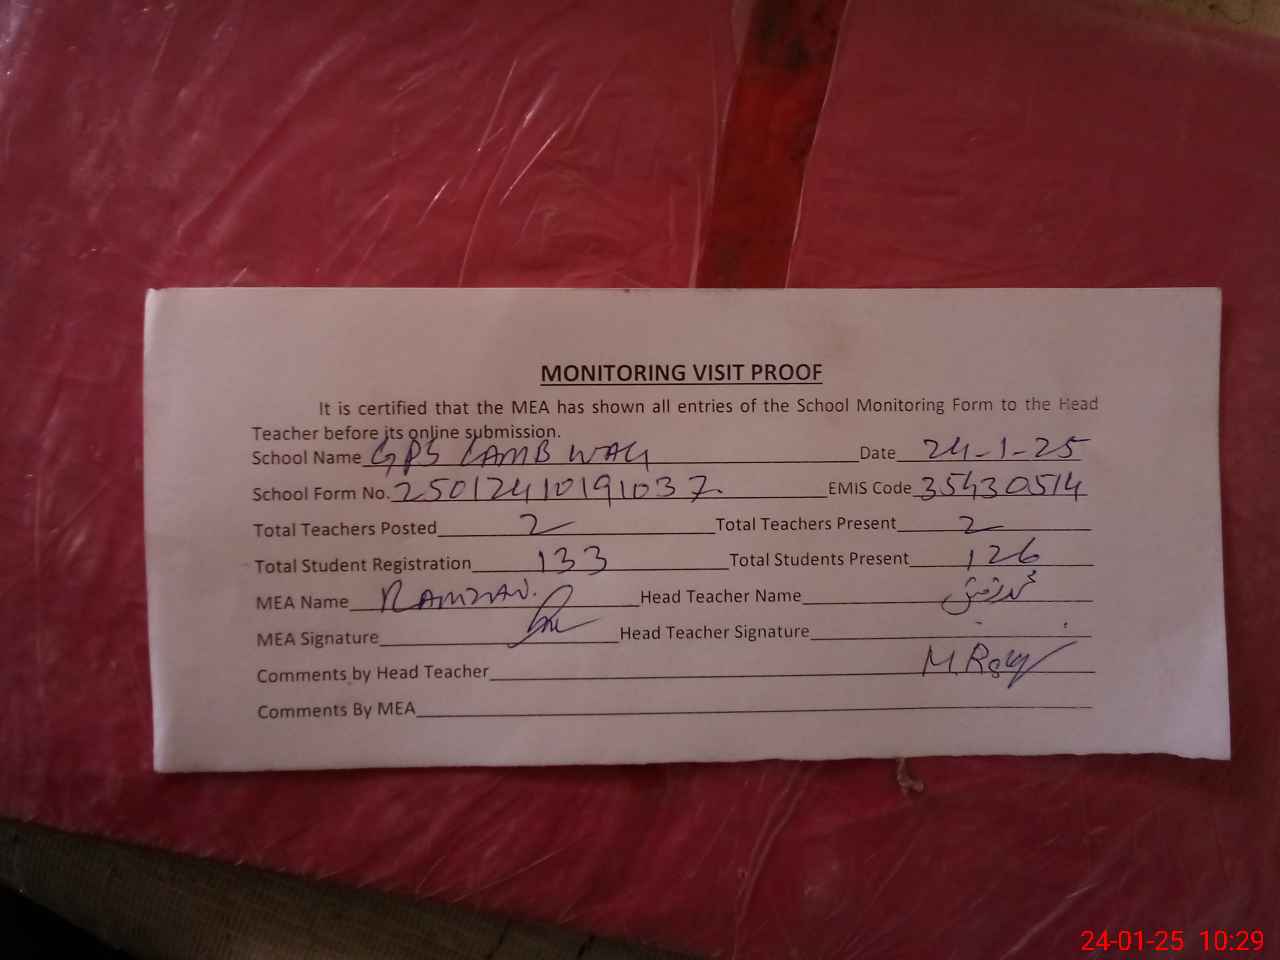 MONITORING VISIT PROOF
It is certified that the MEA has shown all entries of the School Monitoring Form to the Head
Teacher before its online submission.
School Name GPS LAMB WAG Date 24-1-25
School Form No. 25012410191037 EMIS Code 35430514
Total Teachers Posted 2 Total Teachers Present 2
Total Student Registration 133 Total Students Present 126
MEA Name RAMZAN. Head Teacher Name محمد رفیق
MEA Signature Head Teacher Signature
Comments by Head Teacher M. Rafiq
Comments By MEA
24-01-25 10:29